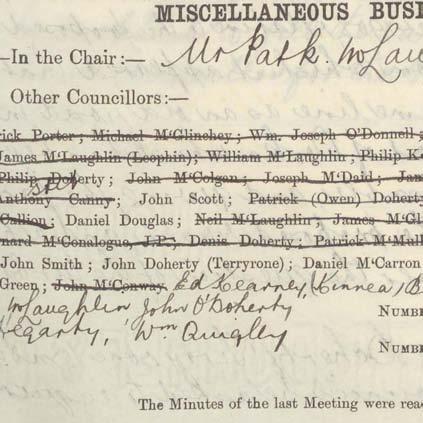 MISCELLANEOUS BUSI
—In the Chair:— Mr Patk. McLau
Other Councillors:—
rick Porter; Michael M'Glinchey; Wm. Joseph O'Donnell;
James M'Laughlin (Leophin); William M'Laughlin; Philip K
Philip Doherty; John M'Colgan; Joseph M'Daid; Jam
Anthony Canny; John Scott; Patrick (Owen) Doherty
Callion; Daniel Douglas; Neil M'Laughlin; James M'Gl
nard M'Conalogue, J.P.; Denis Doherty; Patrick M'Mull
John Smith; John Doherty (Terryrone); Daniel M'Carron
Green; John M'Conway. Ed Kearney, (Kinnea) B
McLaughlin John O'Doherty
NUMBE
Hegarty, Wm Quigley
NUMBE
The Minutes of the last Meeting were rea